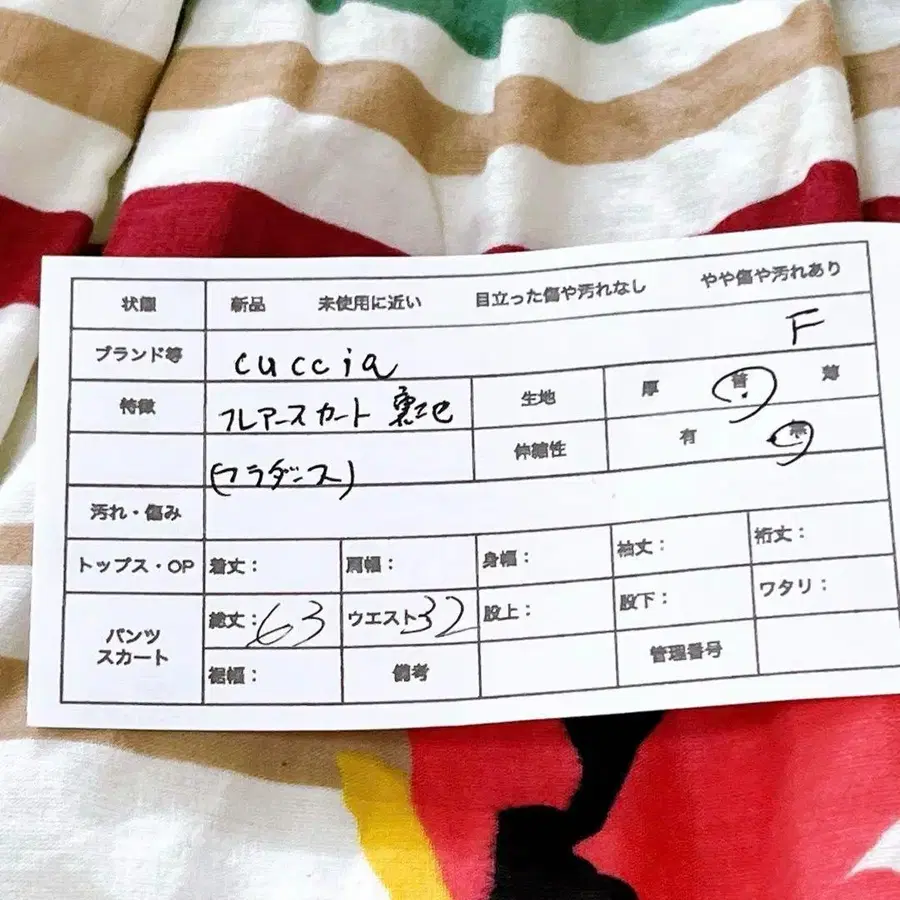 状態 新品 未使用に近い 目立った傷や汚れなし やや傷や汚れあり
ブランド等 cuccia F
特徴 フレアースカート 裏地 生地 厚 普 薄
(フラダンス) 伸縮性 有 無
汚れ・傷み
トップス・OP 着丈: 肩幅: 身幅: 袖丈: 裄丈:
パンツ スカート 総丈: 63 ウエスト 32 股上: 股下: ワタリ:
裾幅: 備考 管理番号